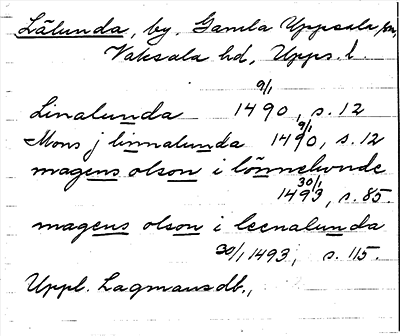 Lälunda, by, Gamla Uppsala sn,
Vaksala hd, Upps. l.
Linalunda 9/1 1490, s. 12
Mons j linnalunda 9/1 1490, s. 12
magens olson i lönnelunde
30/1 1493, s. 85.
magens olson i leenalunda
30/1 1493, s. 115.
Uppl. Lagmansdb.,